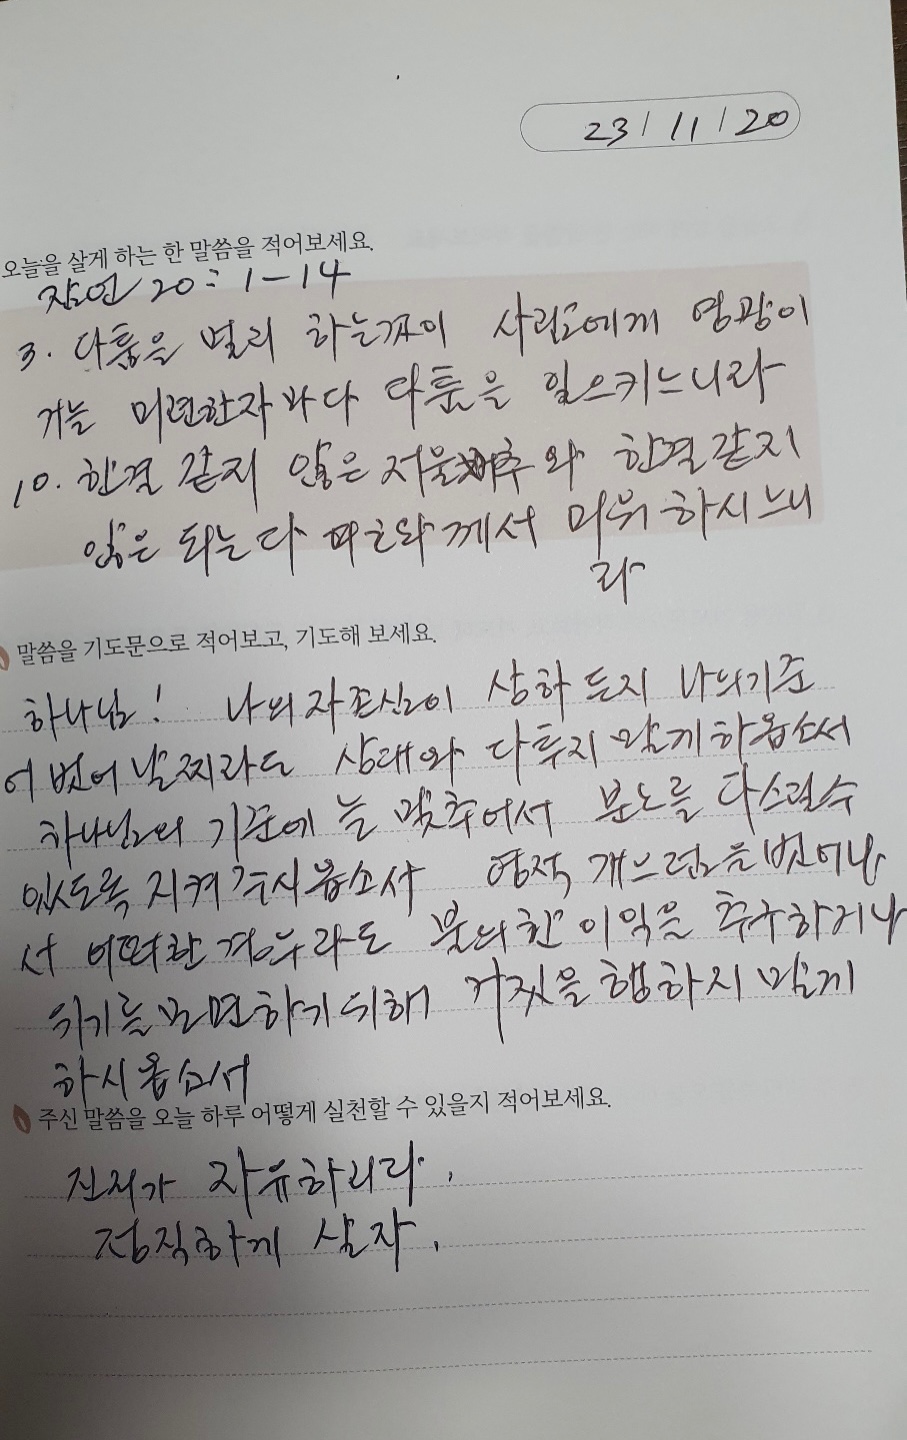 23 / 11 / 20
오늘을 살게 하는 한 말씀을 적어보세요.
잠언 20: 1-14
3. 다툼을 멀리 하는것이 사람에게 영광이
거늘 미련한자마다 다툼을 일으키느니라
10. 한결 같지 않은 저울추와 한결같지
않은 되는 다 여호와께서 미워 하시느니
라
말씀을 기도문으로 적어보고, 기도해 보세요.
하나님! 나의 자존심이 상하든지 나의기준
에 벗어날찌라도 상대와 다투지 않게 하옵소서
하나님의 기준에 늘 맞추어서 분노를 다스릴수
있도록 지켜 주시옵소서 영적 게으름을 벗어나
서 어떠한 경우라도 불의한 이익을 추구하거나
위기를 모면하기 위해 거짓을 행하지 말게
하시옵소서
주신 말씀을 오늘 하루 어떻게 실천할 수 있을지 적어보세요.
진리가 자유하리라.
정직하게 살자.